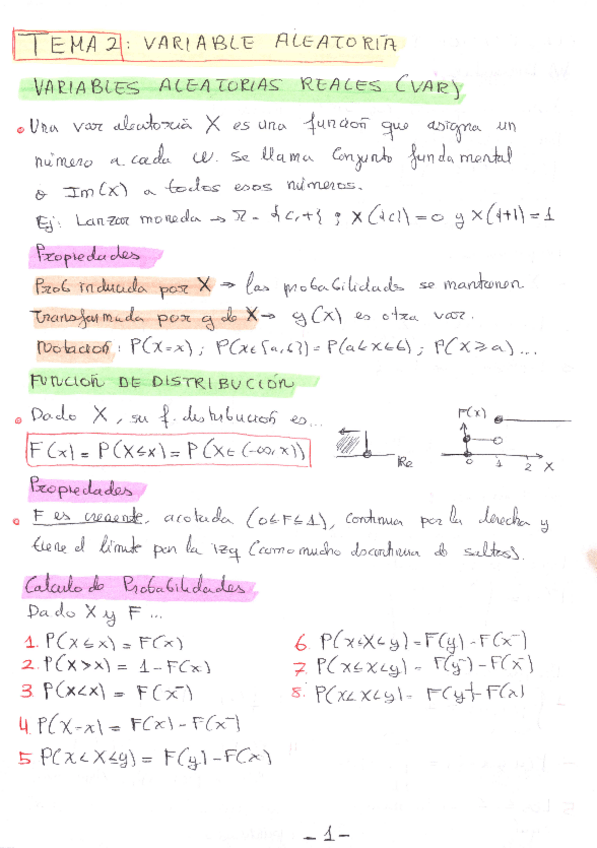 TEMA 2: VARIABLE ALEATORIA
VARIABLES ALEATORIAS REALES (VAR)
Una var aleatoria X es una función que asigna un
número a cada w. Se llama Conjunto fundamental
o Im(X) a todos esos números.
Ej: Lanzar moneda → Ω = {c,+} ; X({c}) = 0 y X({+}) = 1
Propiedades
Prob inducida por X → las probabilidades se mantienen
Transformada por g de X → g(X) es otra var.
Notación: P(X=x) ; P(X∈[a,b]) = P(a≤X≤b) ; P(X≥a) ...
FUNCIÓN DE DISTRIBUCIÓN
Dado X, su f. distribución es...
F(x) = P(X≤x) = P(X∈(-∞,x))
Re
F(x)
0 1 2 X
Propiedades
F es creciente, acotada (0≤F≤1), continua por la derecha y
tiene el límite por la izq (como mucho discontinua de saltos).
Calculo de Probabilidades
Dado X y F ...
1. P(X≤x) = F(x)
2. P(X>x) = 1-F(x)
3. P(X<x) = F(x⁻)
4. P(X=x) = F(x) - F(x⁻)
5 P(x<X≤y) = F(y) - F(x)
6. P(x≤X≤y) = F(y) - F(x⁻)
7. P(x≤X<y) = F(y⁻) - F(x⁻)
8. P(x<X<y) = F(y⁻) - F(x)
- 1 -